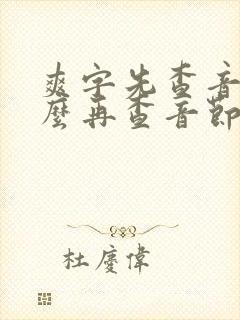 爽字先查音
麼再查音節
杜廈偉